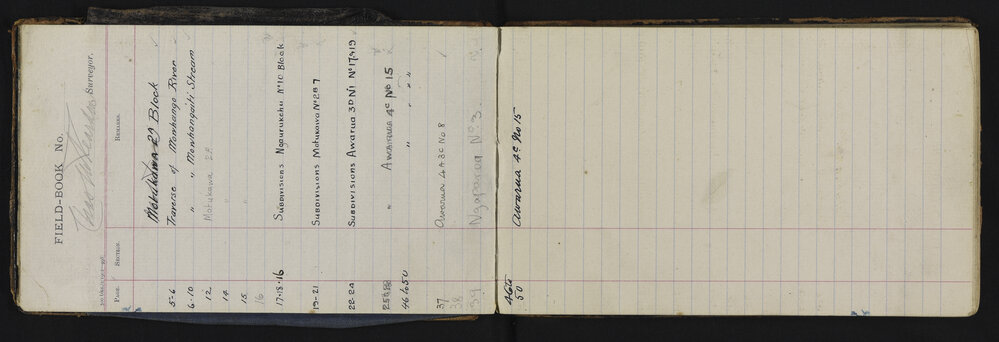 FIELD-BOOK No.
Surveyor.
PAGE. SECTION. REMARKS.
Motukawa 2A Block
5-6 Traverse of Moawhango River
6-10 " " Moawhangaiti Stream
12 Motukawa 2A
14 "
15 "
16
17-18-16 Subdivisions Ngaurukehu No 10 Block
19-21 Subdivisions Motukawa No 2B7
22-24 Subdivisions Awarua 3D No 17&19
" Awarua 4C No 15
46 to 50 " " "
37 Awarua 4A3C No 8
38
39 Ngaparua No 3
46 to 50 Awarua 4C No 15